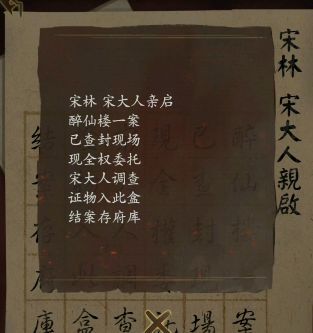 宋林 宋大人親啟
宋林 宋大人亲启
醉仙楼一案
已查封现场
现全权委托
宋大人调查
证物入此盒
结案存府库